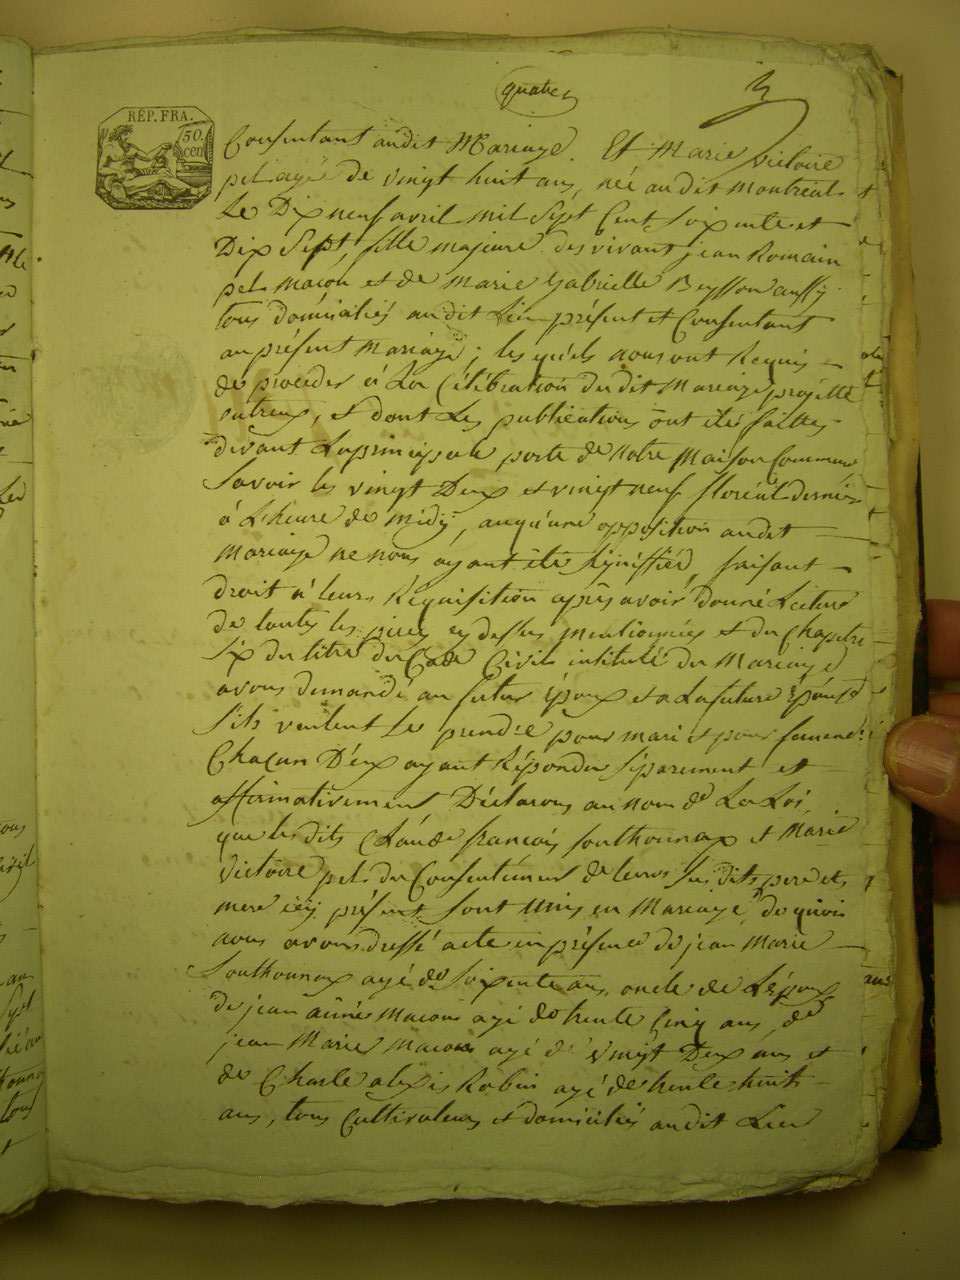 quatre
3
RÉP. FRA.
50.
cen
Consentant audit Mariage. Et Marie victoire
pel agé de vingt huit ans, née audit Montréal
Le Dix neuf avril mil Sept Cent Soixente et
Dix Sept, fille majeure des vivant jean Romain
pel Macon et de Marie Gabrielle Beysson aussy
tous domiciliés audit Lieu présent et Consentant
au présent Mariage; les quels nous ont Requis
de procéder à La Célébration dudit Mariage projetté
entreux, et dont Les publications ont étés faittes
devant La principale porte de Notre Maison Commune
Savoir les vingt Deux et vingt neuf floréal dernier
à L'heure de midy, auqu'une opposition audit
Mariage ne nous ayant été Signiffiéd faisant
droit à leurs Réquisition après avoir donné Lecture
de toutes les pieces cy dessus mentionnées et du Chapitre
Six du titre du Code Civil intitulé du Mariage
avons demandé au futur Époux et a La future Épouse
S'ils veulent Se prendre pour mari et pour femme
Chacun D'eux ayant Répondu Séparement et
affirmativement Déclarons au nom de La Loi
que les dits Claude françois Southonnax et Marie
Victoire pel du Consentement de leurs Susdits pere et
mere icy présent Sont Unis en Mariage de quoi
nous avons dressé acte en présence de jean Marie
Southonnax agé de Soixente ans oncle de L'époux
de jean aimé Macon agé de trente Cinq ans, de
jean Marie Macon agé de vingt Deux ans et
de Charle alexis Robin agé de trente huit
ans, tous Cultivateurs et domiciliés audit Lieu